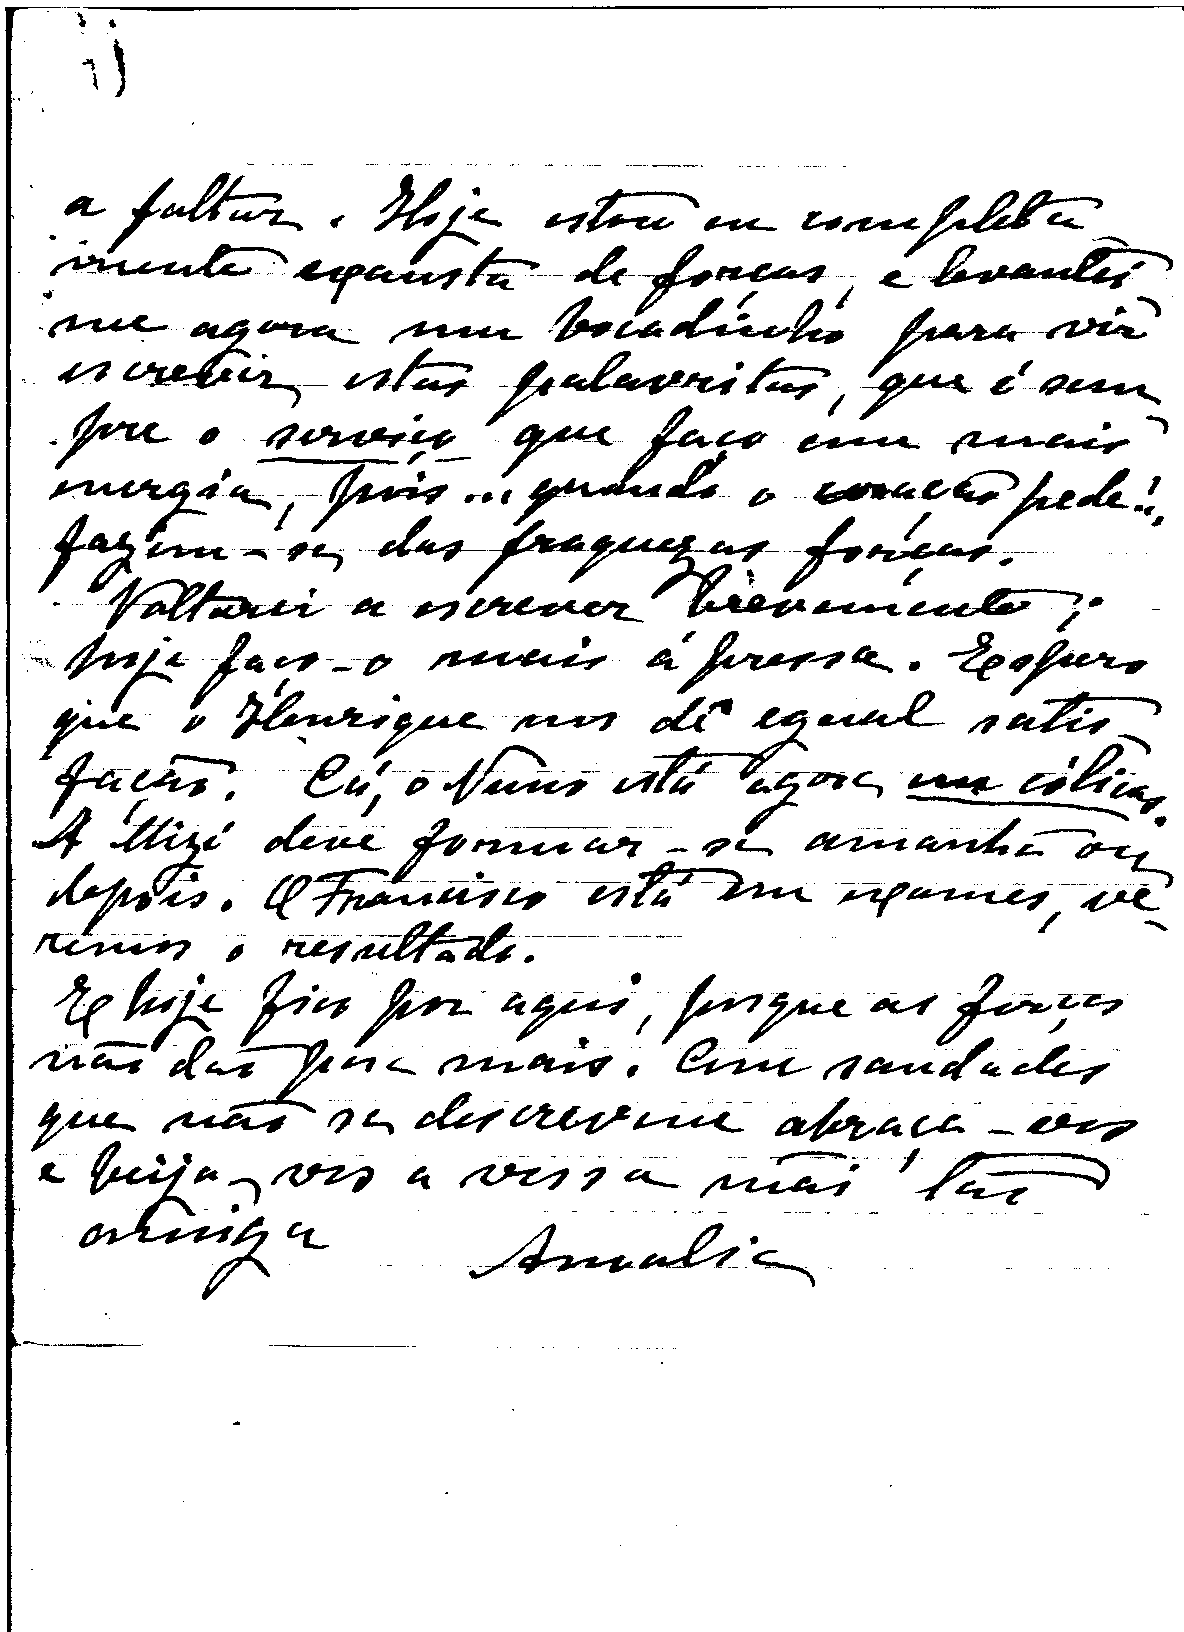 a faltar. Hoje estou eu completa
mente exausta de forças, e levantei
me agora um bocadinho para vir
escrever estas palavritas, que é sem
pre o serviço que faço com mais
energia, pois... quando o coração pede!..
fazem-se das fraquezas forças.
Voltarei a escrever brevemente;
hoje faço-o mais á pressa. Espero
que o Henrique nos dê egual satis
fação. Cá, o Nuno está agora em cólicas.
A Mizi deve formar-se amanhã ou
depois. O Francisco está em exames, ve-
remos o resultado.
E hoje fico por aqui, porque as forças
não dão para mais. Com saudades
que não se descrevem abraça-vos
e beija-vos a vossa mãi tão
amiga
Amalia